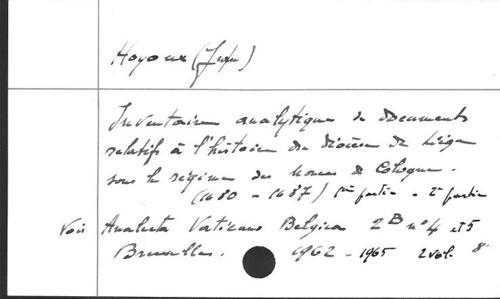 Hoyoux (Jean)
Inventaire analytique de documents
relatifs à l'histoire du diocèse de Liège
sous le régime des nonces de Cologne.
(1680 - 1687) 1ère partie - 2e partie
Voir Analecta Vaticano Belgica 2B n° 4 et 5
Bruxelles. 1962 - 1965 2 vol. 8°